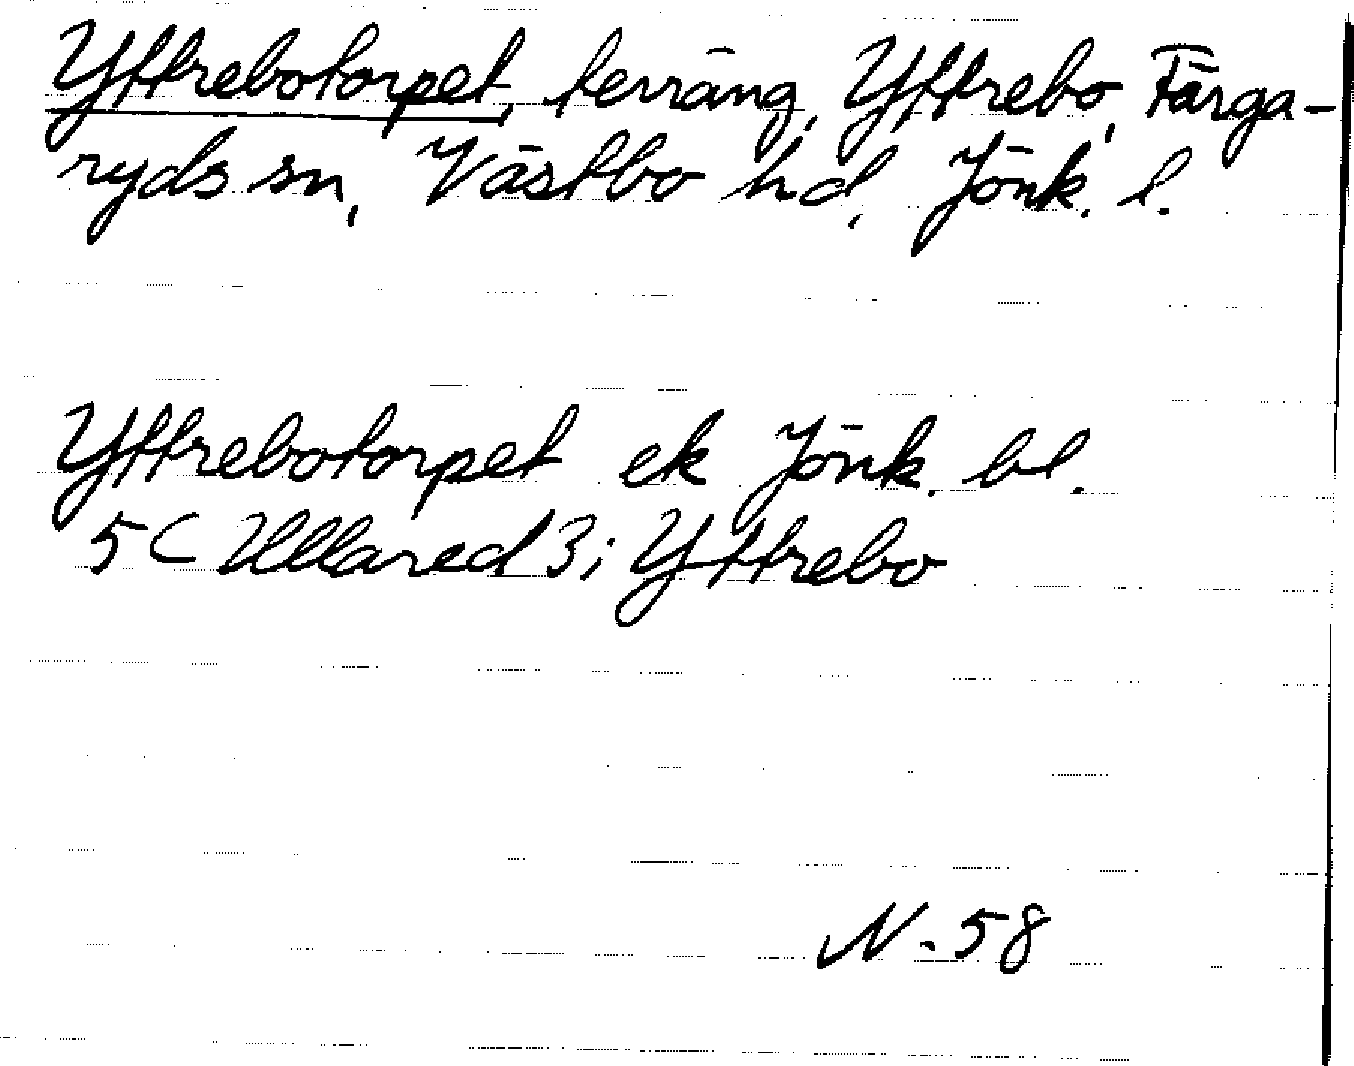 Yttrebotorpet, terräng, Yttrebo, Färga-
ryds sn, Västbo hd, Jönk. l.
Yttrebotorpet ek Jönk. bl.
5 C Ullared 3i Yttrebo
N. 58